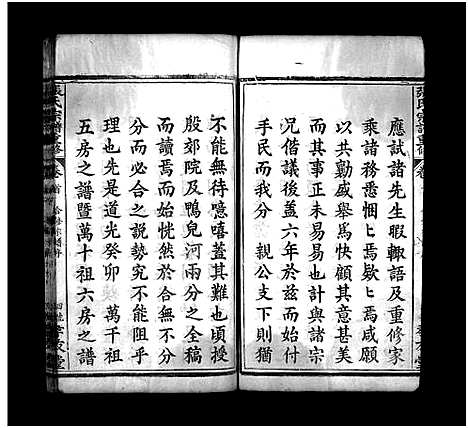 應試諸先生暇輙語及重修家
乘諸務悉悃ヒ焉歉ヒ焉咸願
以共勷盛舉爲快顧其意甚美
而其事正未易易也嗣與諸宗
兄偕議後蓋六年於兹而始付
手民而分 親公支下則猶
不能無待噫嘻蓋其難也頃授
殷郊院及鴨兒河兩分之全稿
而讀焉而始恍然於合無不分
分而必合之説勢究不能阻乎
理也先是道光癸卯 萬千祖
五房之譜暨萬十祖六房之譜